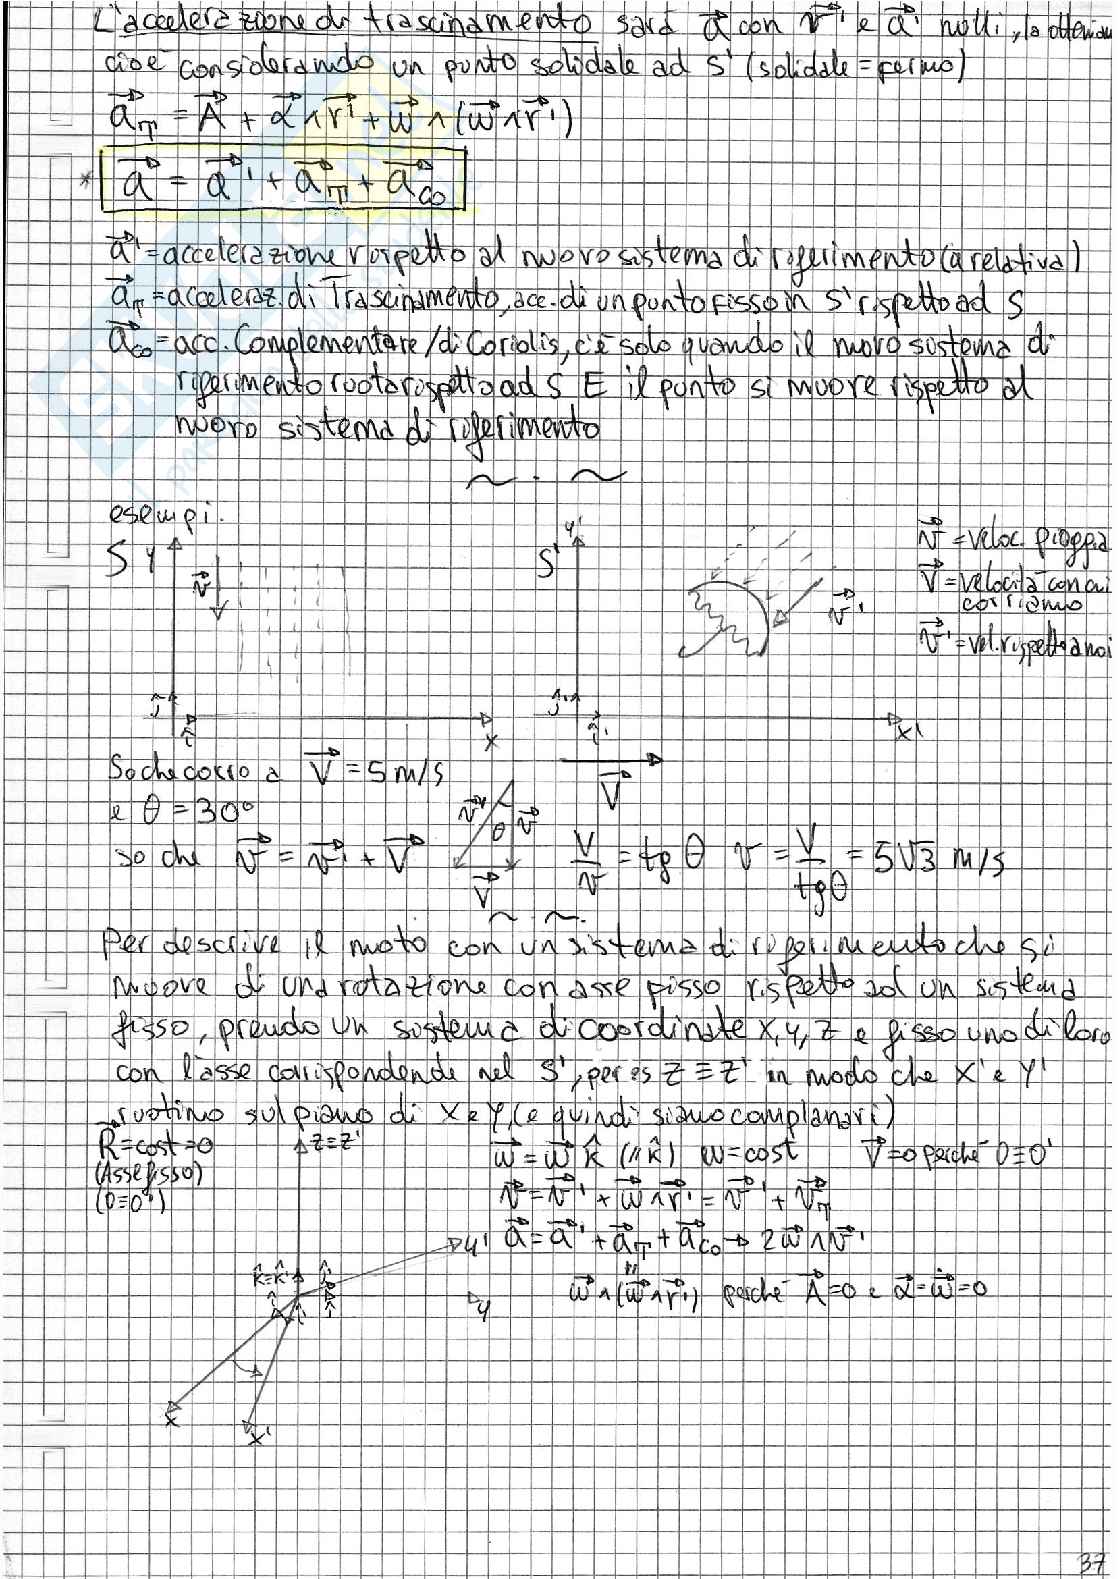 L'accelerazione di trascinamento sarà a⃗ con v⃗' e a⃗' nulli, la otteniam
cioè considerando un punto solidale ad S' (solidale = fermo)
a⃗_T = A⃗ + α⃗ ∧ r⃗' + ω⃗ ∧ (ω⃗ ∧ r⃗')
* a⃗ = a⃗' + a⃗_T + a⃗_co
a⃗' = accelerazione rispetto al nuovo sistema di riferimento (a relativa)
a⃗_T = acceleraz. di Trascinamento, acc. di un punto fisso in S' rispetto ad S
a⃗_co = acc. Complementare / di Coriolis, c'è solo quando il nuovo sistema di
riferimento ruota rispetto ad S E il punto si muove rispetto al
nuovo sistema di riferimento
~ . ~
esempi.
S y v⃗ ĵ î x
S' y' v⃗' ĵ' î' x' V⃗
v⃗ = veloc. pioggia
V⃗ = velocità con cui
corriamo
v⃗' = vel. rispetto a noi
So che corro a V⃗ = 5 m/s
e θ = 30°
so che v⃗ = v⃗' + V⃗
v⃗' θ v⃗ V⃗
V/v = tg θ v = V/tgθ = 5√3 m/s
~ ~.
Per descrive il moto con un sistema di riferimento che si
muove di una rotazione con asse fisso rispetto ad un sistema
fisso, prendo un sistema di coordinate x, y, z e fisso uno di loro
con l'asse corrispondende nel S', per es z ≡ z' in modo che x' e y'
ruotino sul piano di x e y, (e quindi siano complanari)
R⃗ = cost = 0
(Asse fisso)
(O≡O')
z ≡ z'
ω⃗ = ω⃗ k̂ (// k̂) ω = cost V⃗ = 0 perché O ≡ O'
v⃗ = v⃗' + ω⃗ ∧ r⃗' = v⃗' + v⃗_T
a⃗ = a⃗' + a⃗_T + a⃗_co → 2ω⃗ ∧ v⃗'
ω⃗ ∧ (ω⃗ ∧ r⃗') perché A⃗ = 0 e α⃗ = ω⃗̇ = 0
y'
k̂≡k̂'
y
x
x'
37